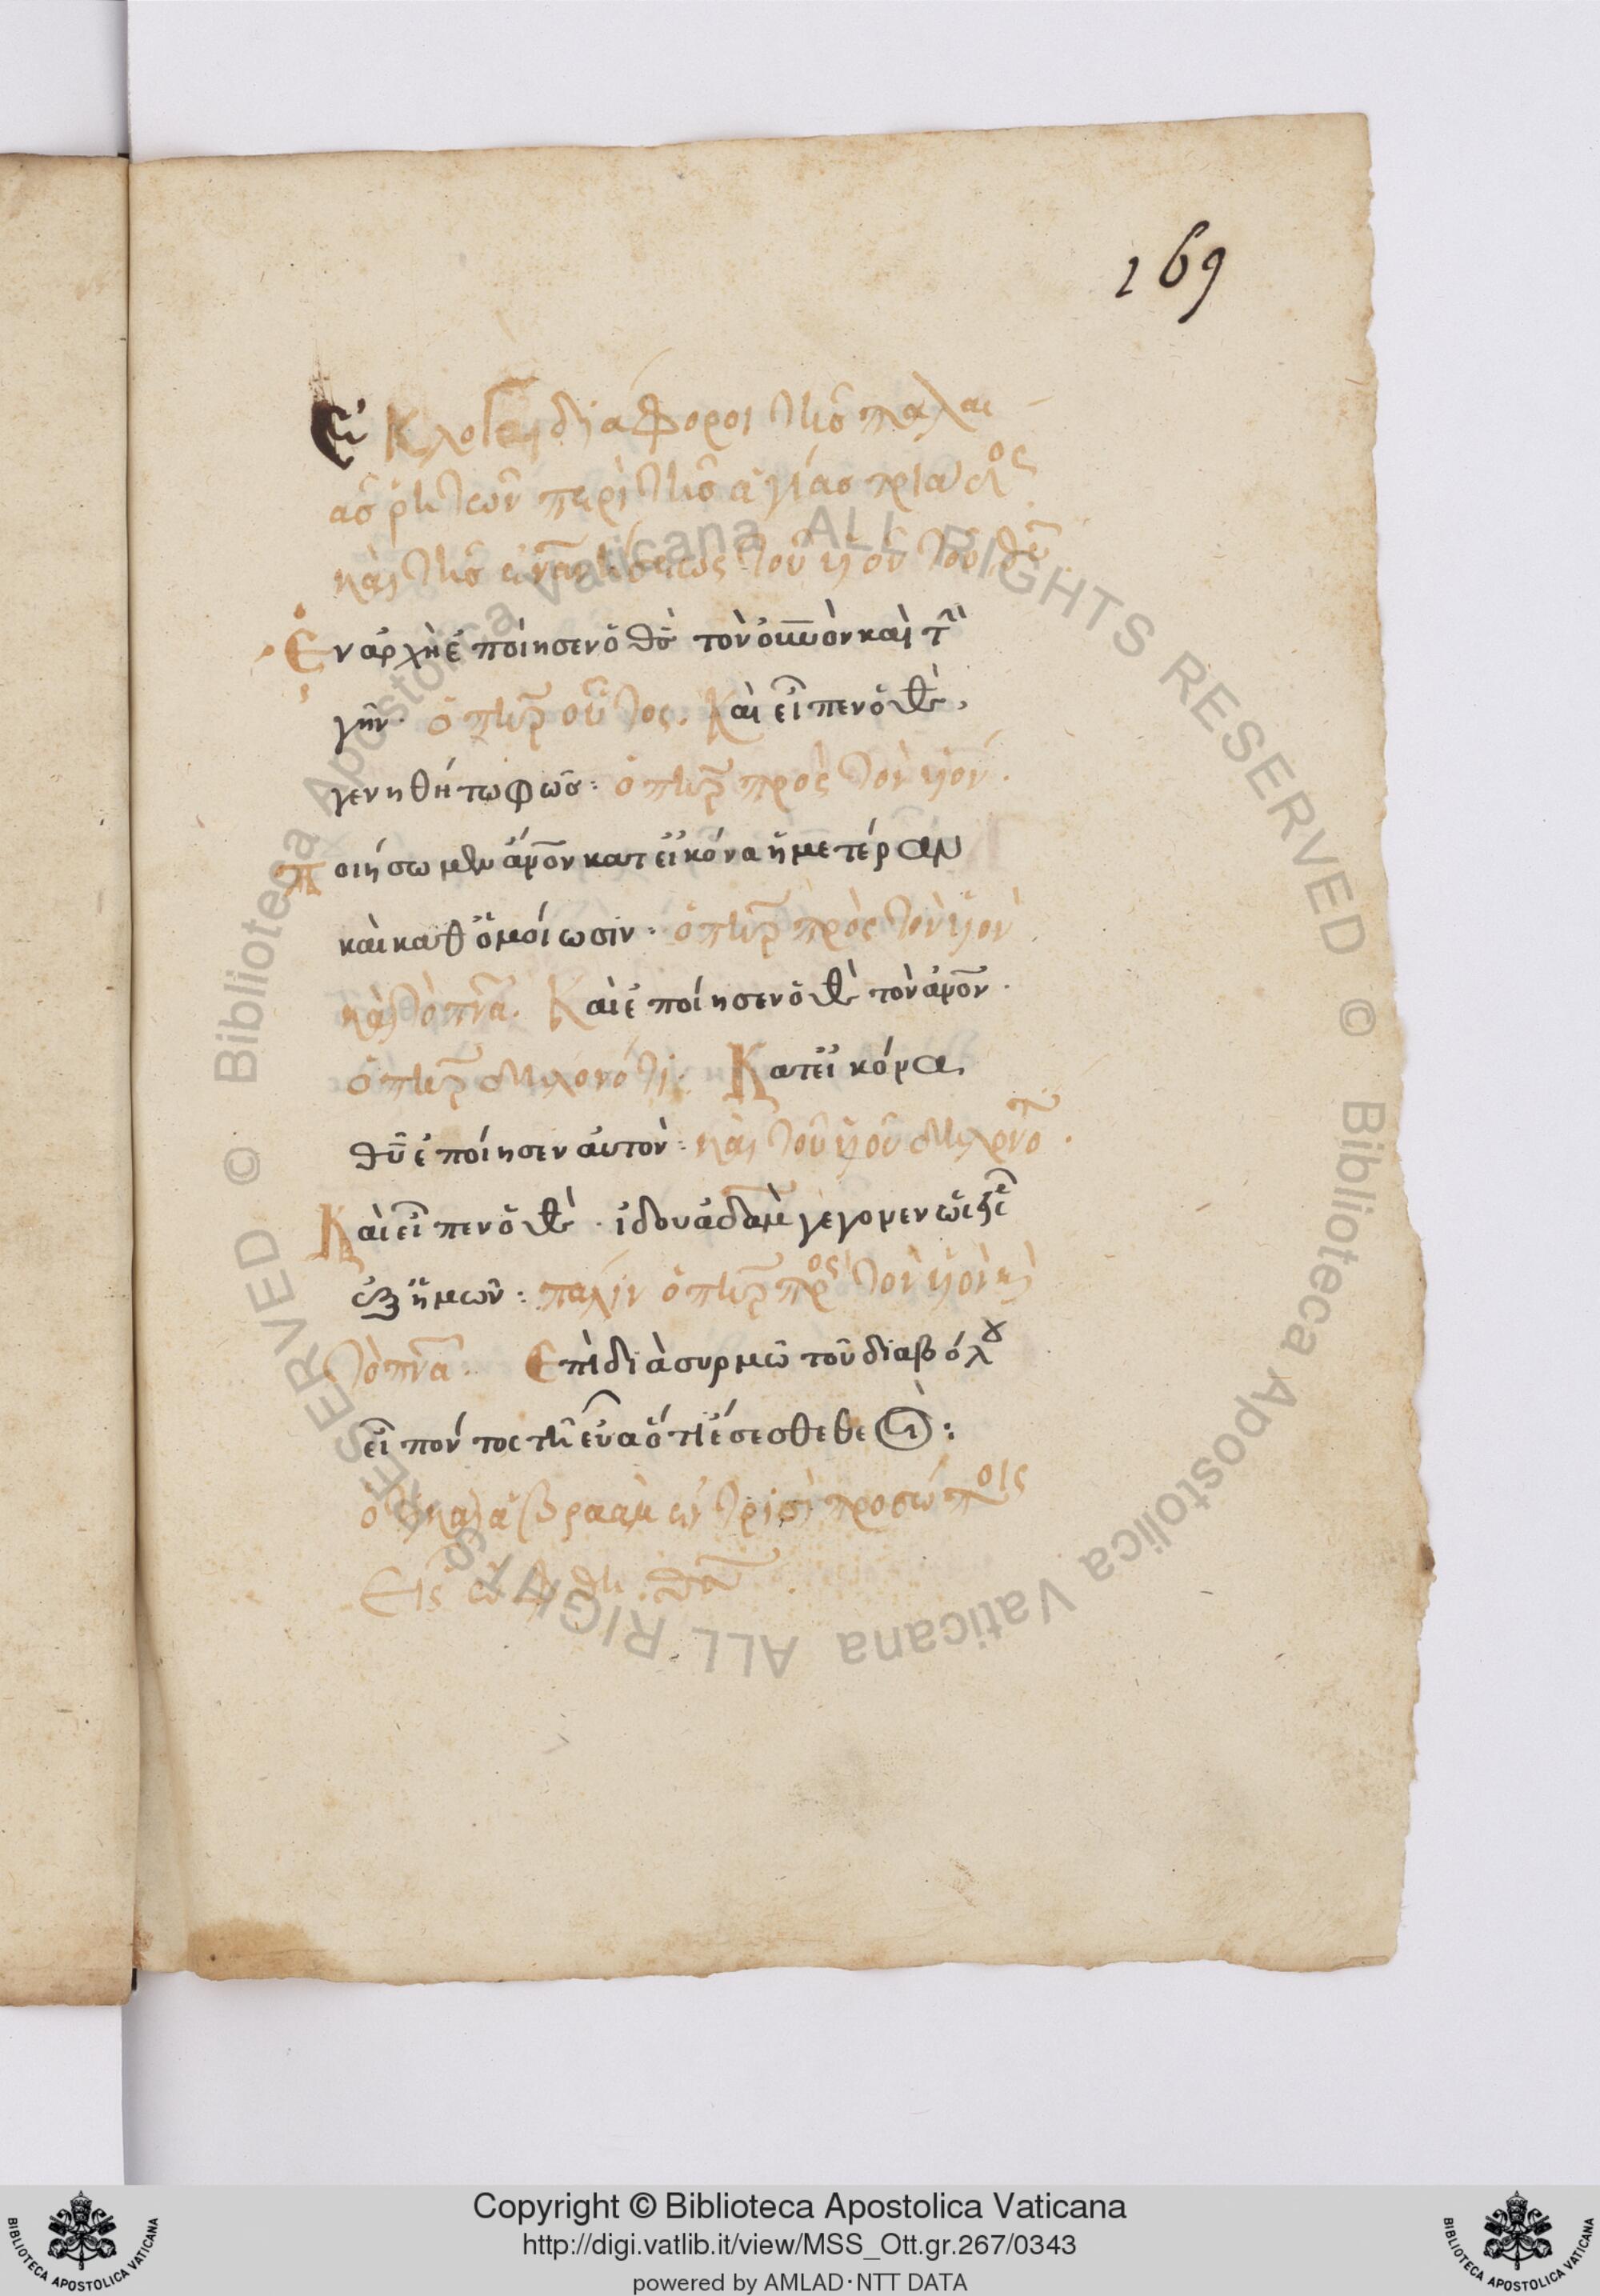 169
Ἐκλογαὶ διάφοροι τῆς παλαι
ᾶς ῥητῶν περὶ τῆς ἁγίας τριάδος
καὶ τῆς τοῦ υἱοῦ τοῦ θυ
Ἐν ἀρχῆ ἐποίησεν ὁ θς τὸν οὐνον καὶ τὴ
γῆν. ὁ πηρ οὗτος. Καὶ εἶπεν ὁ θς.
γενηθήτω φῶς: ὁ πηρ πρὸς τὸν υἱόν.
ποιήσωμεν ἄνον κατεἰκόνα ἡμετέραν
καὶ καθ ὁμοίωσιν. ὁ πηρ πρὸς τὸν υἱὸν
καὶ τὸ πνα. Καὶ ἐποίησεν ὁ θς τὸν ἄνον.
ὁ πηρ δηλονότι. Κατεἰκόνα
θυ ἐποίησεν αὐτόν: καὶ τοῦ υἱοῦ
Καὶ εἶπεν ὁ θς. ἰδοὺ ἀδὰμ γέγονεν ὡς εἷς
ἐξ ἡμῶν: πάλιν ὁ πηρ πρὸς τὸν υἱὸν κὶ
τὸ πνα. Ἐπὶ διασυρμῶ τοῦ διαβόλου
εἰπόντος τῆ εὔα ὅτι ἔσεσθε θεοί:
ὅτι καὶ ἀβραὰμ ἐν τρισὶ προσώποις
Εἷς
Copyright © Biblioteca Apostolica Vaticana
http://digi.vatlib.it/view/MSS_Ott.gr.267/0343
powered by AMLAD·NTT DATA
BIBLIOTECA APOSTOLICA VATICANA
BIBLIOTECA APOSTOLICA VATICANA
© Biblioteca Apostolica Vaticana ALL RIGHTS RESERVED © Biblioteca Apostolica Vaticana ALL RIGHTS RESERVED